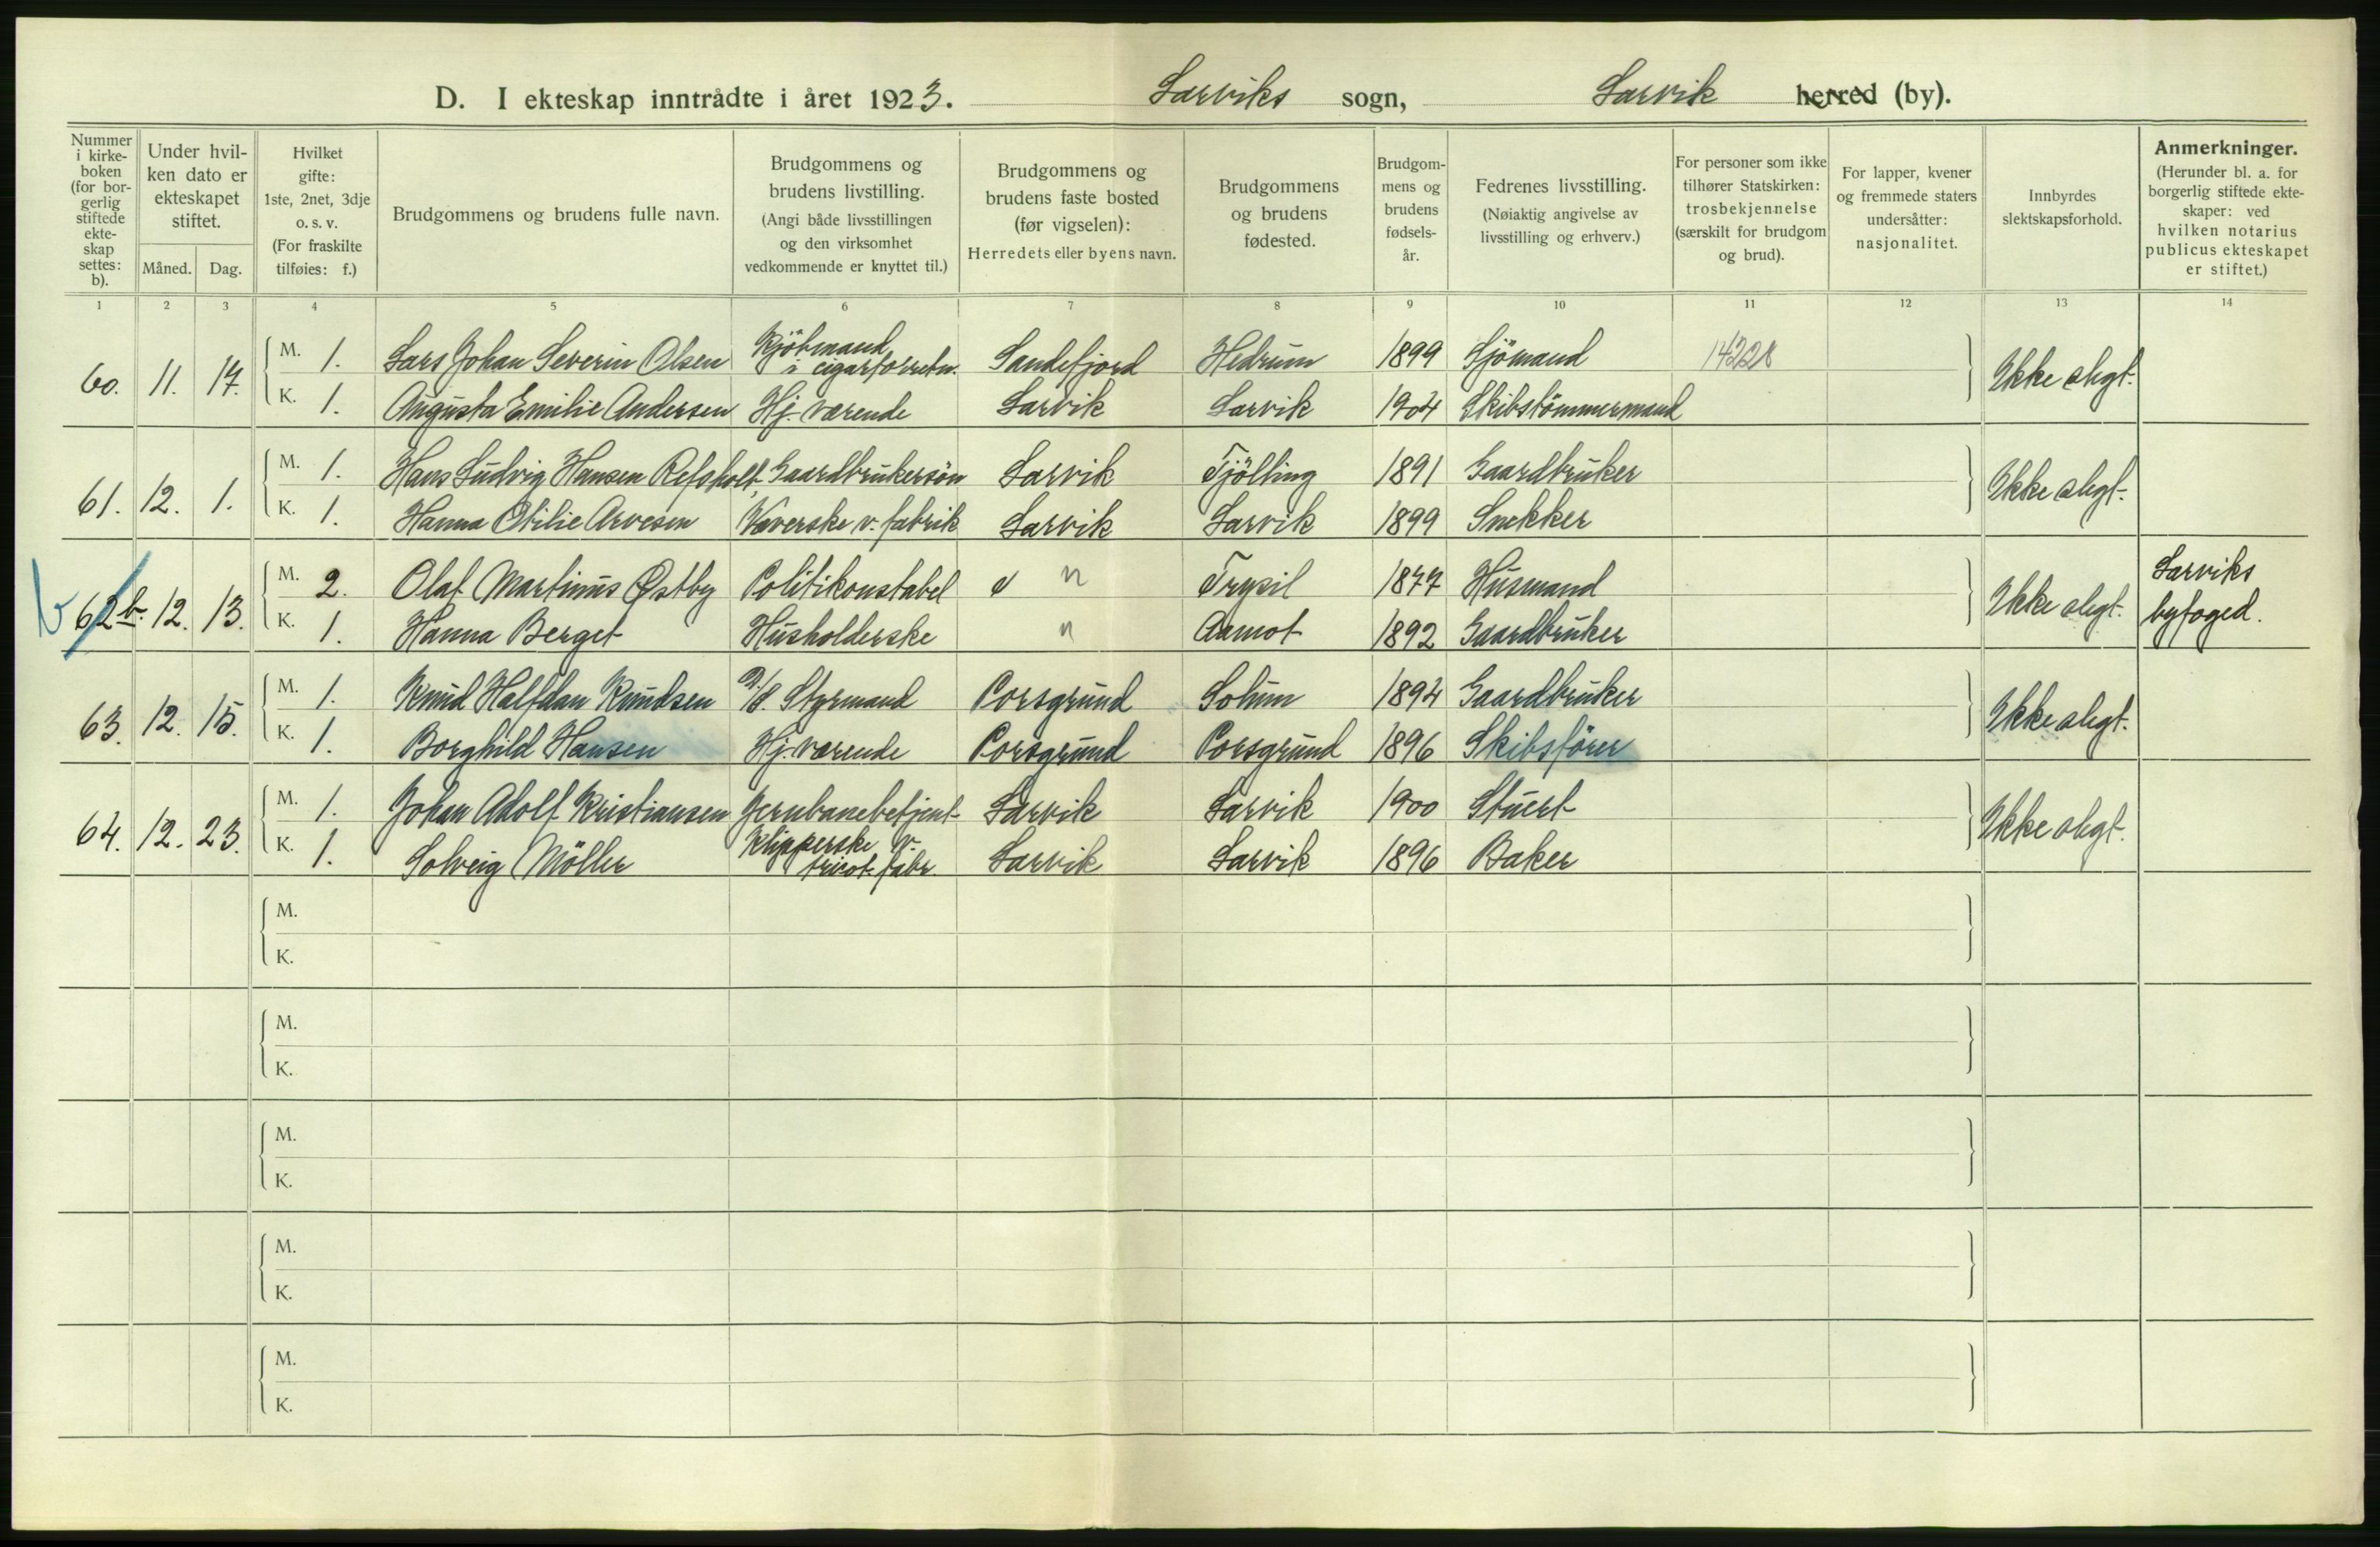 D. I ekteskap inntrådte i året 1923. Larviks sogn, Larvik herred (by).
Nummer i kirkeboken (for borgerlig stiftede ekteskap settes: b).
Under hvilken dato er ekteskapet stiftet.
Måned. Dag.
Hvilket gifte: 1ste, 2net, 3dje o. s. v. (For fraskilte tilføies: f.)
Brudgommens og brudens fulle navn.
Brudgommens og brudens livsstilling. (Angi både livsstillingen og den virksomhet vedkommende er knyttet til.)
Brudgommens og brudens faste bosted (før vigselen): Herredets eller byens navn.
Brudgommens og brudens fødested.
Brudgommens og brudens fødselsår.
Fedrenes livsstilling. (Nøiaktig angivelse av livsstilling og erhverv.)
For personer som ikke tilhører Statskirken: trosbekjennelse (særskilt for brudgom og brud).
For lapper, kvener og fremmede staters undersåtter: nasjonalitet.
Innbyrdes slektskapsforhold.
Anmerkninger. (Herunder bl. a. for borgerlig stiftede ekteskaper: ved hvilken notarius publicus ekteskapet er stiftet.)
1 2 3 4 5 6 7 8 9 10 11 12 13 14
60. 11. 17. M. 1. Lars Johan Severin Olsen Kjöbmand i cigarforretn. Sandefjord Hedrum 1899 Sjömand 14228 Ikke slegt.
K. 1. Augusta Emilie Andersen Hj. værende Larvik Larvik 1904 Skibstömmermand
61. 12. 1. M. 1. Hans Ludvig Hansen Refsholt Gaardbrukersön Larvik Tjölling 1891 Gaardbruker Ikke slegt.
K. 1. Hanna Otilie Arvesen Væverske v. fabrik Larvik Larvik 1899 Snekker
62 b. 12. 13. M. 2. Olaf Martinus Østby Politikonstabel n Trysil 1877 Husmand Ikke slegt. Larviks byfoged.
K. 1. Hanna Berget Husholderske n Aamot 1892 Gaardbruker
63. 12. 15. M. 1. Knud Halfdan Knudsen Styrmand Porsgrund Solum 1894 Gaardbruker Ikke slegt.
K. 1. Borghild Hansen Hj. værende Porsgrund Porsgrund 1896 Skibsförer
64. 12. 23. M. 1. Johan Adolf Kristiansen Jernbanebetjent Larvik Larvik 1900 Stuert Ikke slegt.
K. 1. Solveig Möller Klipperske v. tricot. fabr. Larvik Larvik 1896 Baker
M.
K.
M.
K.
M.
K.
M.
K.
M.
K.